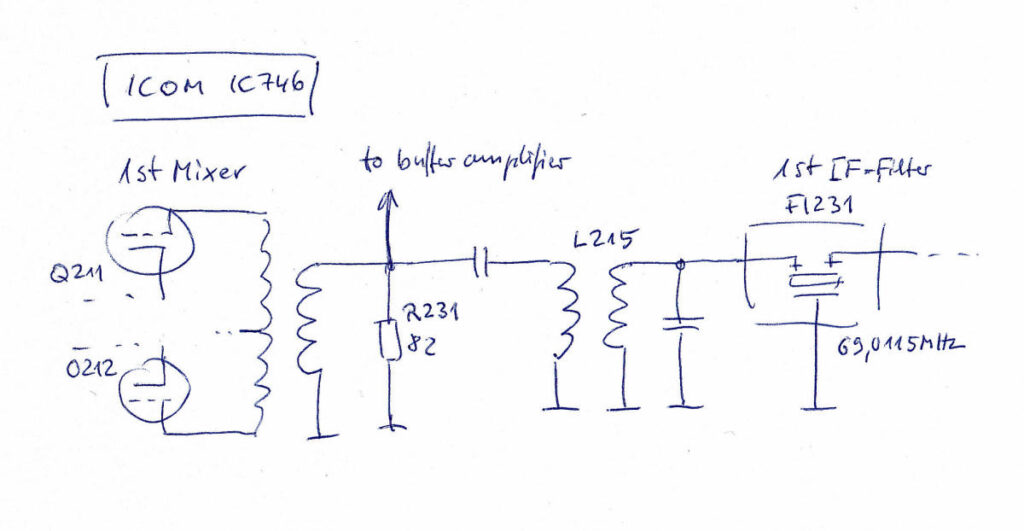 ICOM IC746
1st Mixer
to buffer amplifier
1st IF-Filter
FI231
Q211
L215
R231
82
Q212
69,0115MHz